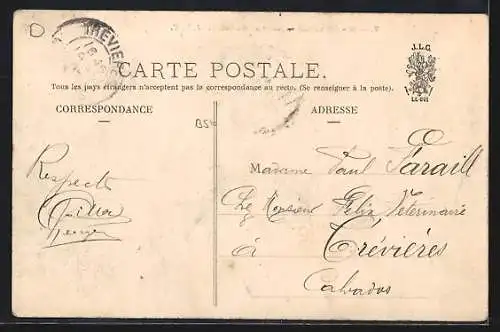 D
TREVIERES
J.L.C.
CARTE POSTALE.
Tous les pays étrangers n'acceptent pas la correspondance au recto. (Se renseigner à la poste).
CORRESPONDANCE
ADRESSE
Respects
Madame Paul
Chez Monsieur Felix Veterinaire
à Trévières
Calvados